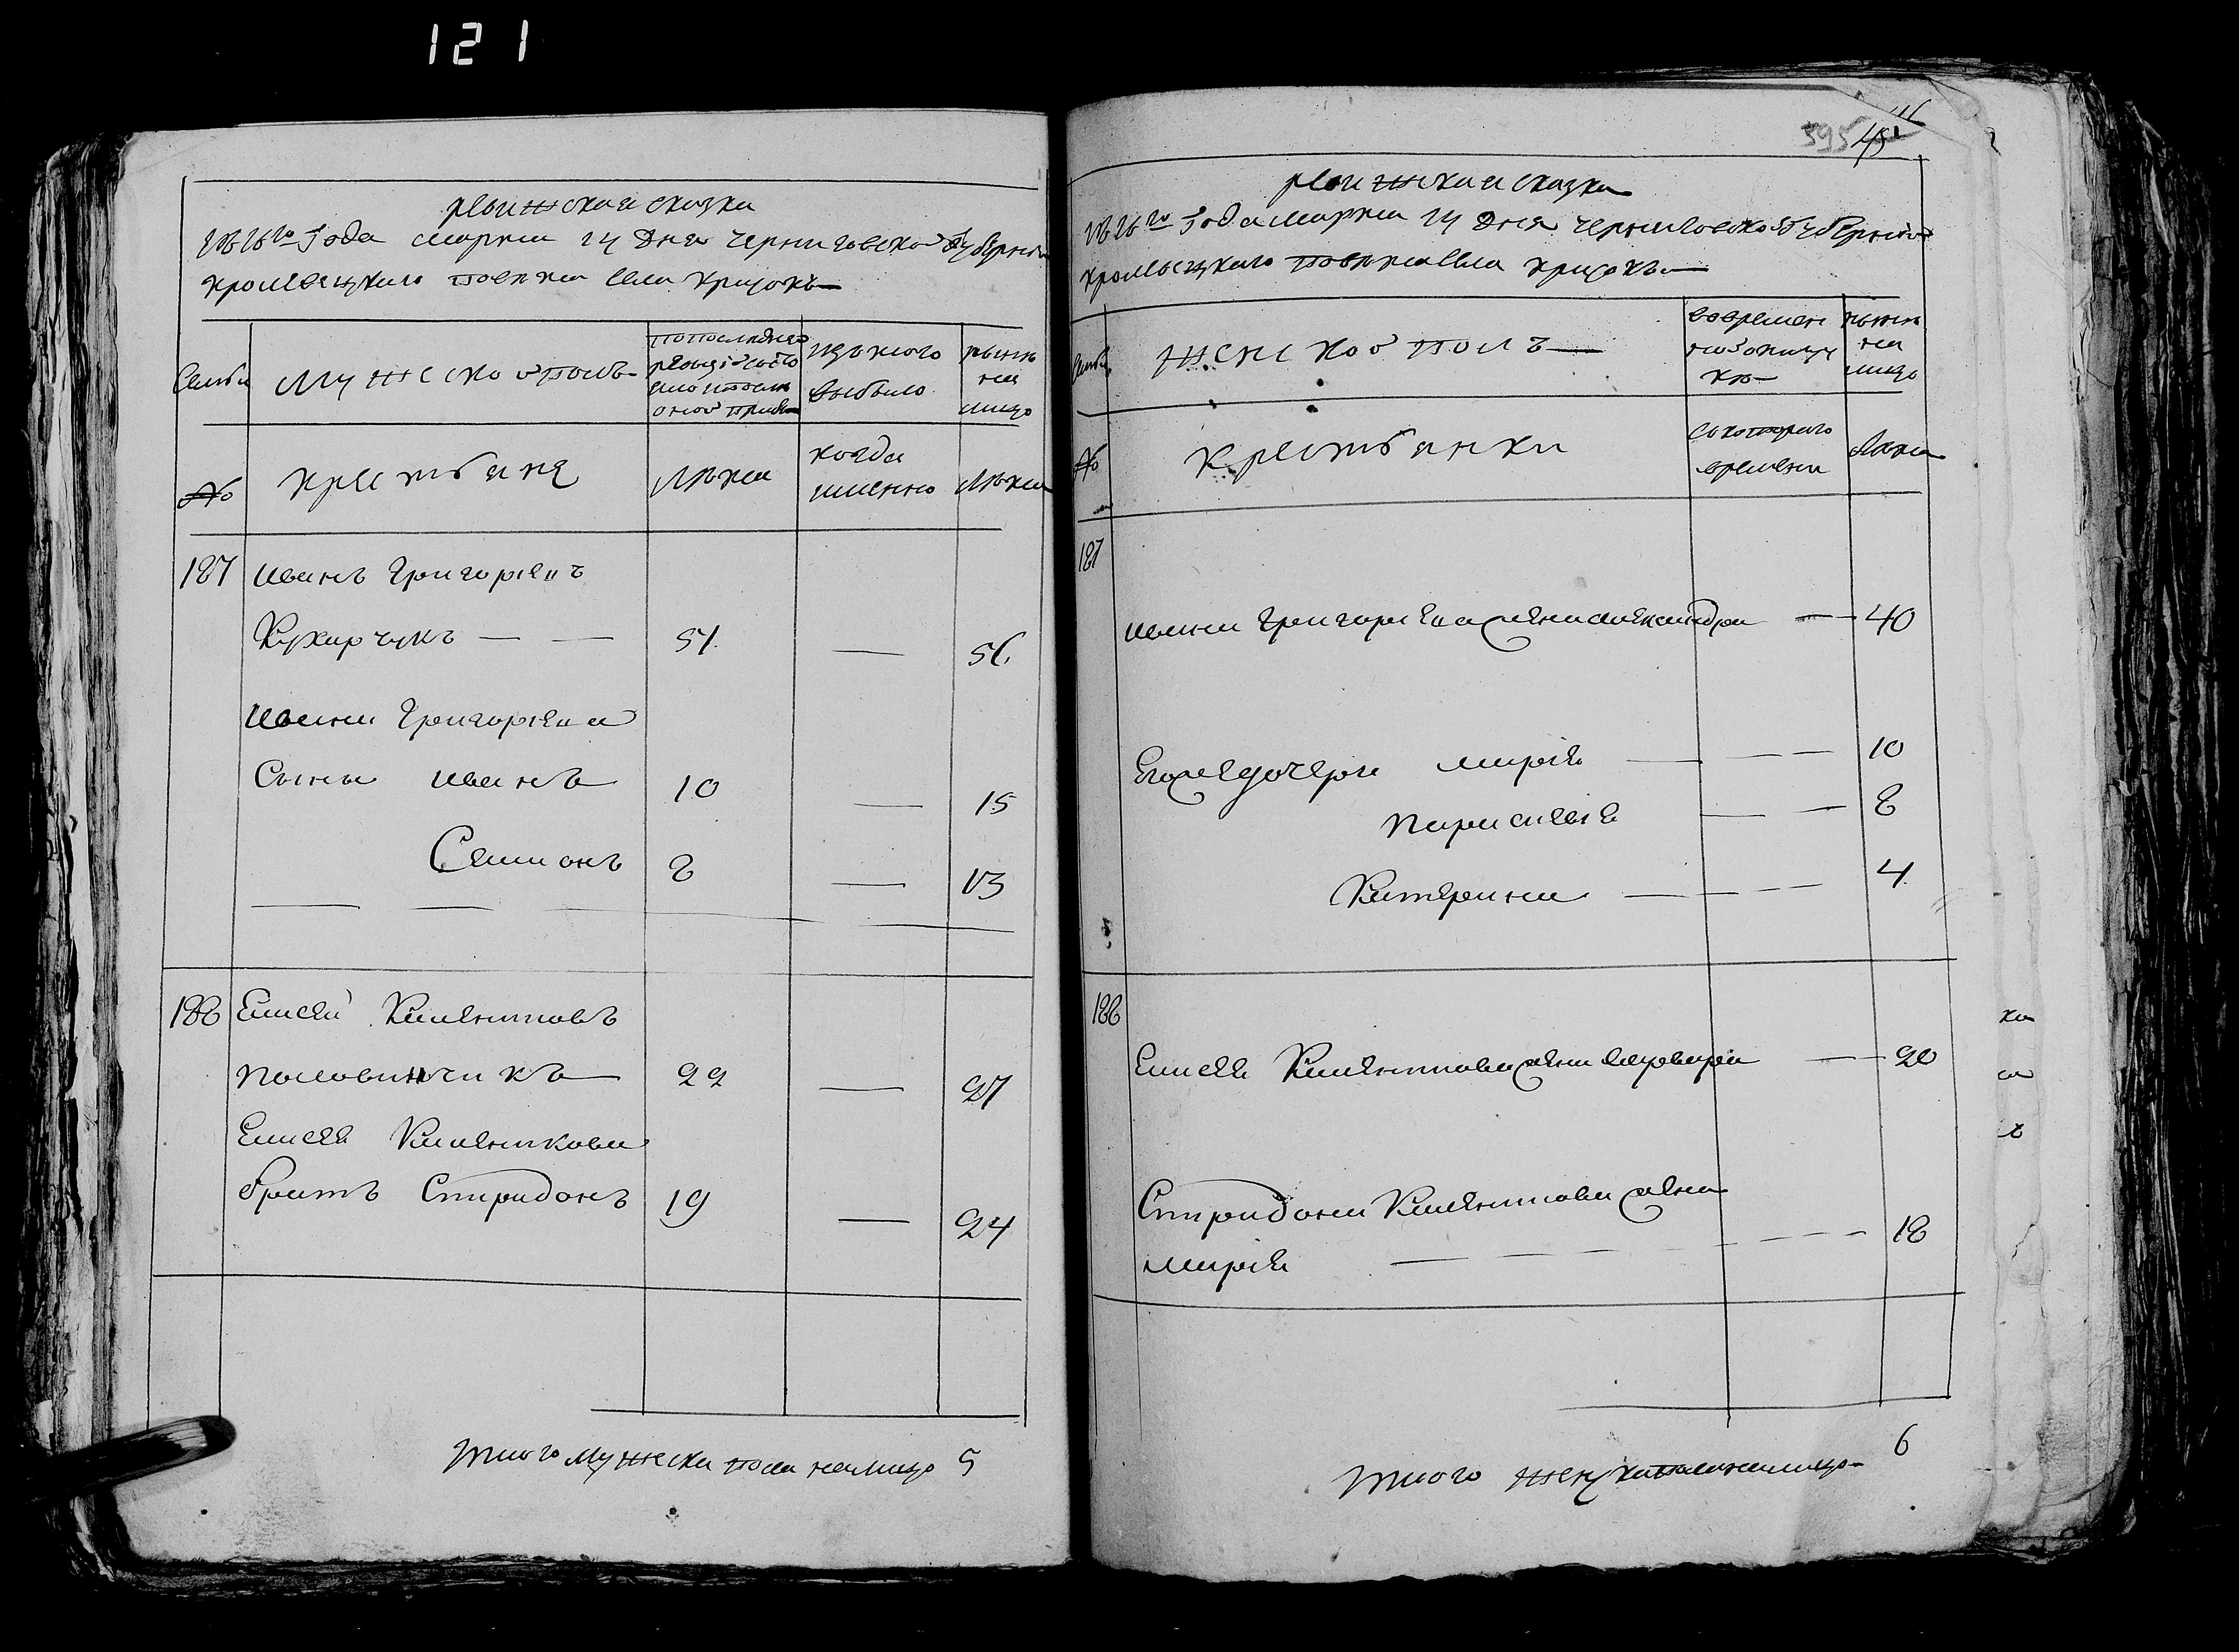 121
ревижская сказка
1816го года марта 14 дня черниговской губернии
кролевецкаго повета села Кращокъ
Семьи
мужеской полъ
по последней ревизіи состояло и после оной прибыло
изъ того выбыло
ныне на лицо
№
крестьяне
Лета
когда именно
Лета
187 Иванъ Григорiевъ
Кухарчукъ — — 51. — 56.
Ивана Григорiева
Сыны Иванъ 10 — 15
Самионъ 8 — 13
188 Елисей Климентовъ
Половинчикъ 22 — 27
Елисея Климентова
братъ Спиридонъ 19 — 24
Итого мужеска пола налицо 5
395
ревижская сказка
1816го года марта 14 дня черниговской губернии
кролевецкаго повета села Кращокъ
Семьи
женской полъ
во временной отлучке
ныне на лицо
№
крестьянки
съ котораго времени
Лета
187
Ивана Григориева жена Александра — 40
Его же дочери Марiя — 10
Парасκевiя — 8
Катерина — 4.
188
Елисея Климентова жена Варвара — 20
Спиридона Климентова жена
Марiя — 18
Итого женска пола налицо 6